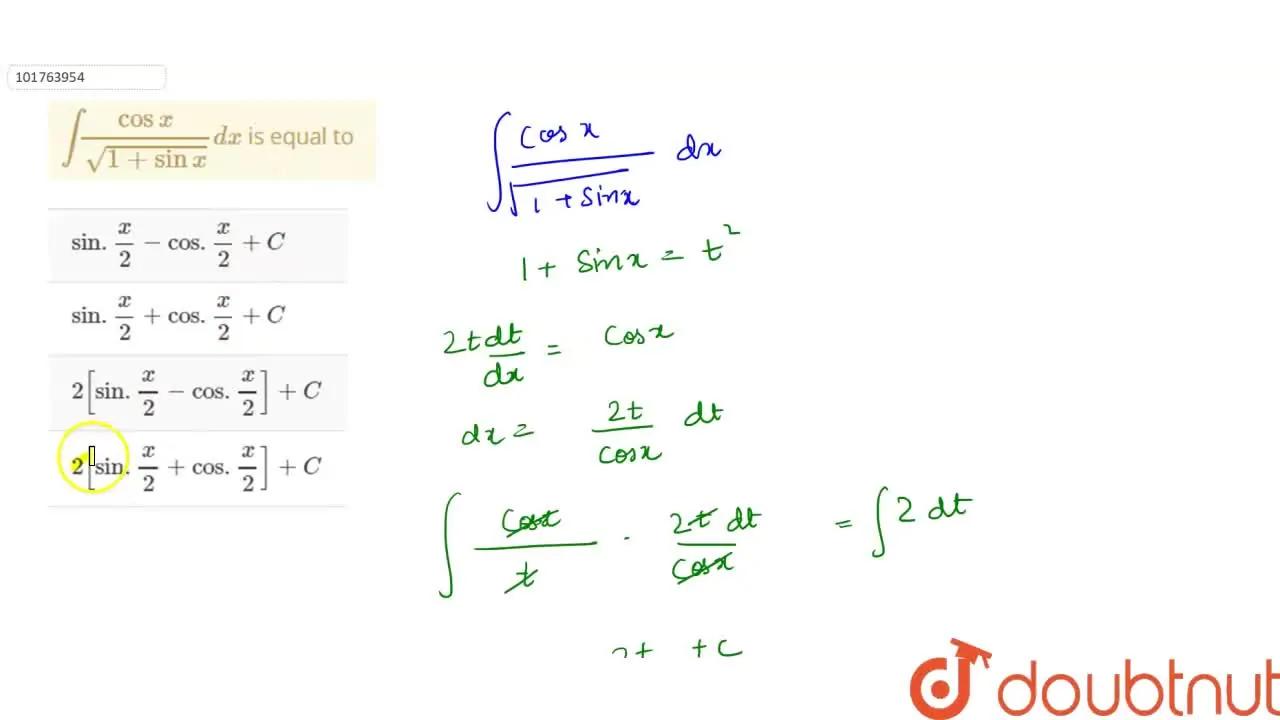 101763954
∫ cos x / √(1 + sin x) dx is equal to
sin. x/2 − cos. x/2 + C
sin. x/2 + cos. x/2 + C
2[sin. x/2 − cos. x/2] + C
2[sin. x/2 + cos. x/2] + C
∫ Cos x / √(1 + Sin x) dx
1 + Sin x = t²
2t dt/dx = Cos x
dx = 2t/Cos x dt
∫ Cos x / t · 2t dt / Cos x = ∫ 2 dt
2t + C
doubtnut